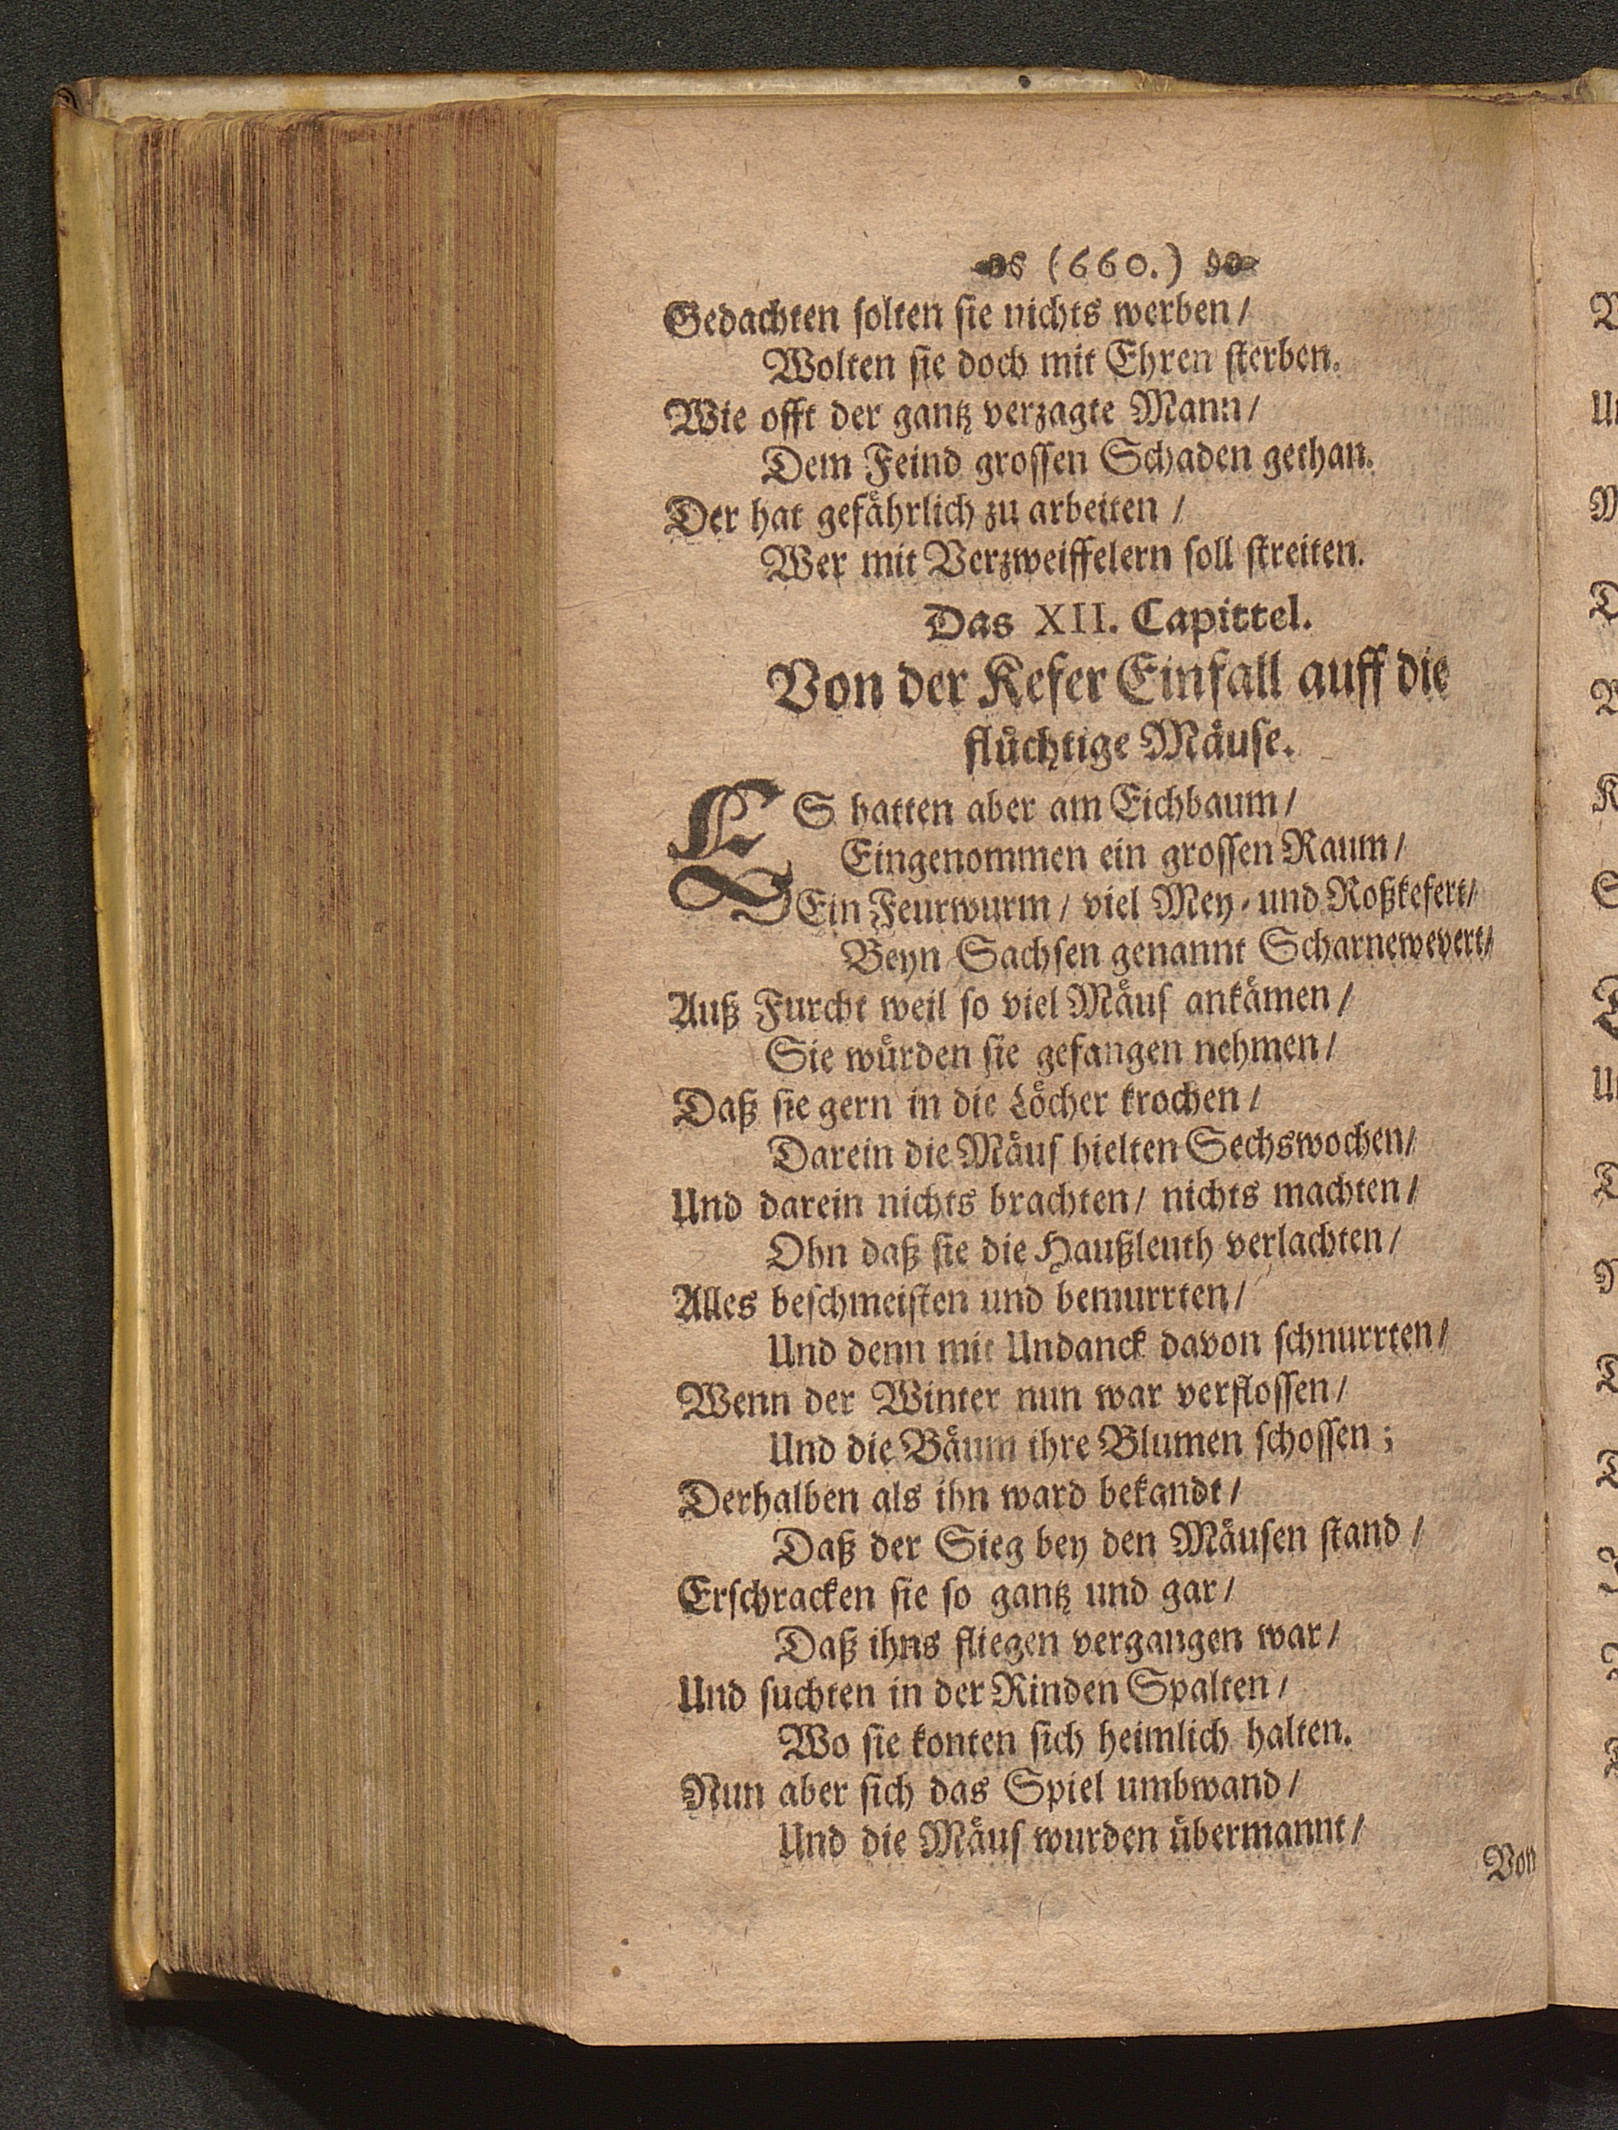 (660.)
Gedachten ſolten ſie nichts werben/
Wolten ſie doch mit Ehren ſterben.
Wie offt der gantz verzagte Mann/
Dem Feind groſſen Schaden gethan.
Der hat gefaͤhrlich zu arbeiten /
Wer mit Verzweiffelern ſoll ſtreiten.
Das XII. Capittel.
Von der Kefer Einfall auff die
fluͤchtige Maͤuſe.
ES hatten aber am Eichbaum/
Eingenommen ein groſſen Raum/
Ein Feurwurm/ viel Mey⸗und Roßkefert/
Beyn Sachſen genannt Scharnewevert/
Auß Furcht weil ſo viel Maͤuſ ankaͤmen/
Sie wuͤrden ſie gefangen nehmen/
Daß ſie gern in die Loͤcher krochen/
Darein die Maͤuſ hielten Sechswochen/
Und darein nichts brachten/ nichts machten/
Ohn daß ſie die Haußleuth verlachten/
Alles beſchmeiſten und bemurrten/
Und denn mit Undanck davon ſchnurrten/
Wenn der Winter nun war verfloſſen/
Und die Baͤum ihre Blumen ſchoſſen;
Derhalben als ihn ward bekandt/
Daß der Sieg bey den Maͤuſen ſtand/
Erſchracken ſie ſo gantz und gar/
Daß ihns fliegen vergangen war/
Und ſuchten in der Rinden Spalten/
Wo ſie konten ſich heimlich halten.
Nun aber ſich das Spiel umbwand/
Und die Maͤuſ wurden uͤbermannt/
Von